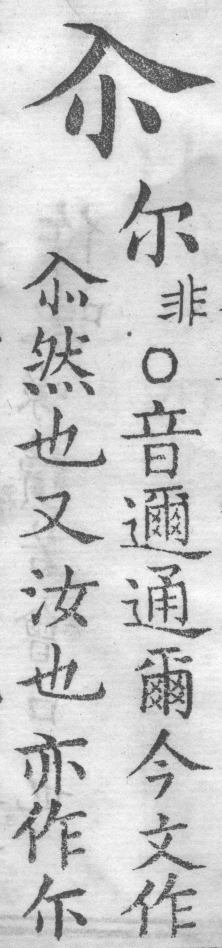 尒
尔非〇音邇通爾今文作
尒然也又汝也亦作尓